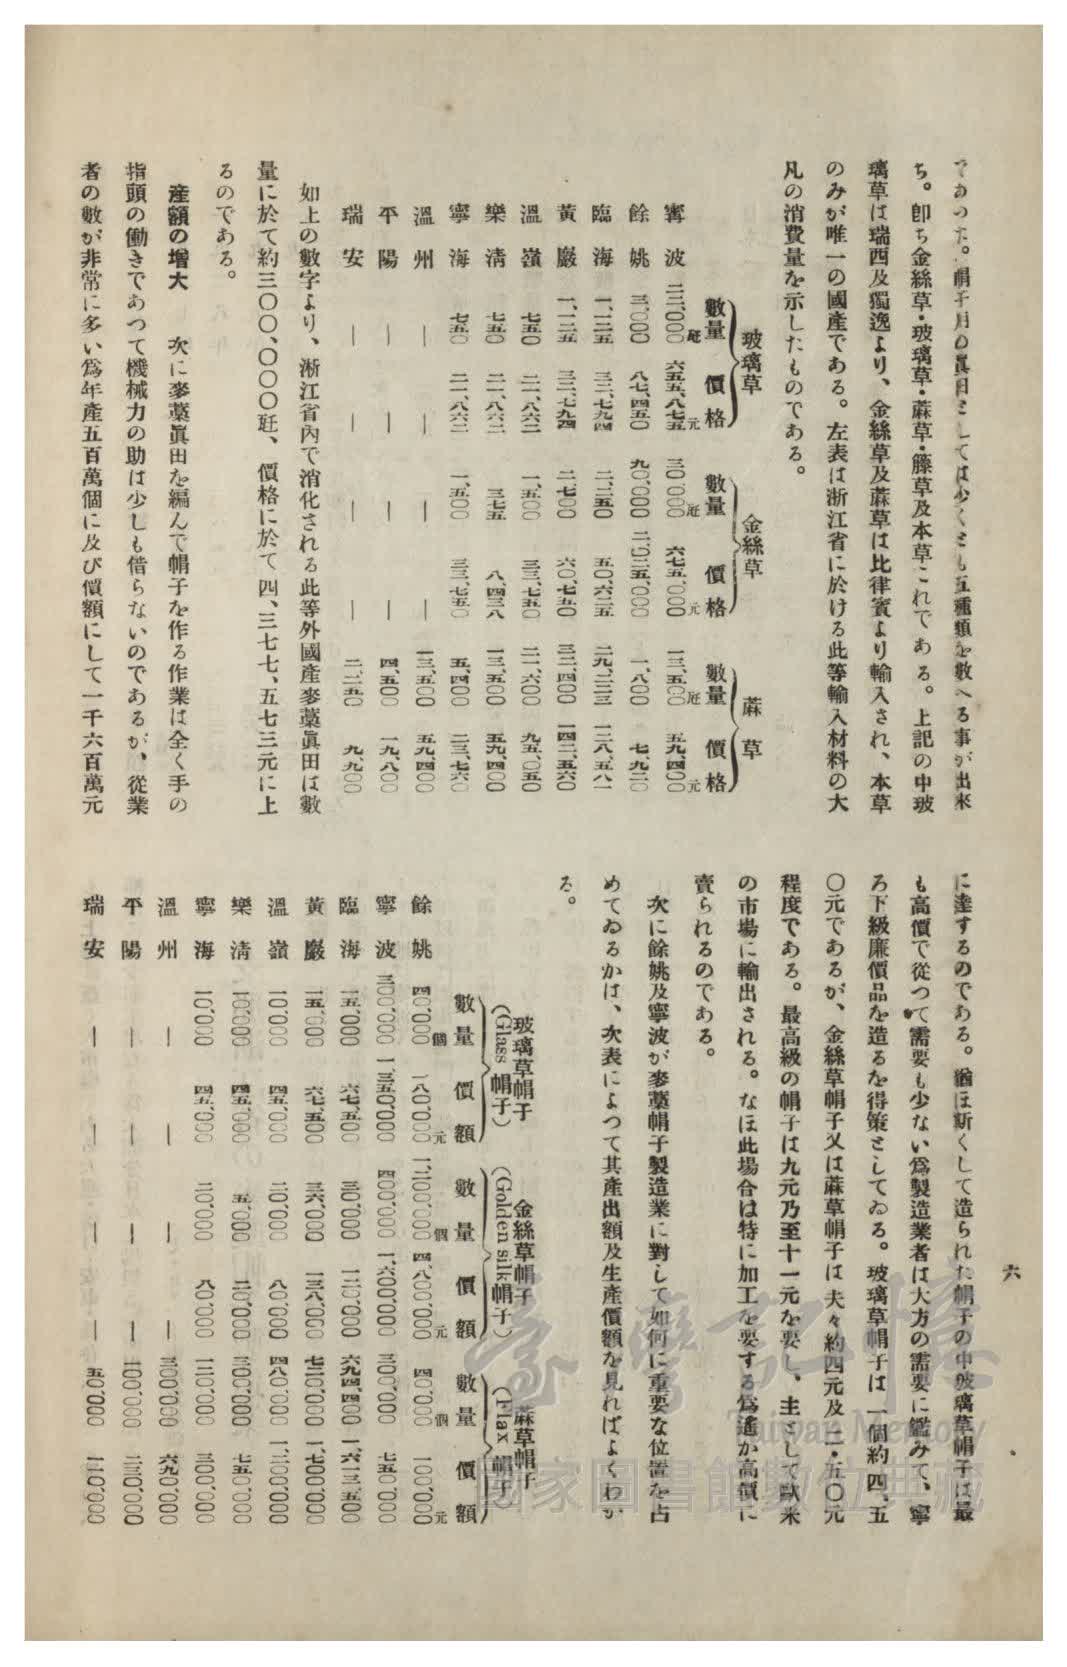 であつた。帽子用の眞田としては少くとも五種類を數へる事が出來
ち。卽ち金絲草・玻璃草・蔴草・籐草及本草これである。上記の中玻
璃草は瑞西及獨逸より、金絲草及蔴草は比律賓より輸入され、本草
のみが唯一の國產である。左表は浙江省に於ける此等輸入材料の大
凡の消費量を示したものである。
玻璃草 金絲草 蔴草
數量 價格 數量 價格 數量 價格
寧波 二三、〇〇〇瓩 六五五、八七五元 三〇、〇〇〇瓩 六七五、〇〇〇元 一三、五〇〇瓩 五九、四〇〇元
餘姚 三、〇〇〇 八七、四五〇 九〇、〇〇〇 二、〇二五、〇〇〇 一、八〇〇 七、九二〇
臨海 一、一二五 三二、七九四 二、二五〇 五〇、六二五 二九、二二三 一二八、五八一
黃巖 一、一二五 三二、七九四 二、七〇〇 六〇、七五〇 三二、四〇〇 一四二、五六〇
溫嶺 七五〇 二一、八六二 一、五〇〇 三三、七五〇 二一、六〇〇 九五、〇五〇
樂淸 七五〇 二一、八六二 三七五 八、四三八 一三、五〇〇 五九、四〇〇
寧海 七五〇 二一、八六二 一、五〇〇 三三、七五〇 五、四〇〇 二三、七六〇
溫州 — — — — 一三、五〇〇 五九、四〇〇
平陽 — — — — 四、五〇〇 一九、八〇〇
瑞安 — — — — 二、二五〇 九、九〇〇
如上の數字より、浙江省內で消化される此等外國產麥藁眞田は數
量に於て約三〇〇、〇〇〇瓩、價格に於て四、三七七、五七三元に上
るのである。
產額の增大 次に麥藁眞田を編んで帽子を作る作業は全く手の
指頭の働きであつて機械力の助は少しも借らないのであるが、從業
者の數が非常に多い爲年產五百萬個に及び價額にして一千六百萬元
六
に達するのである。猶ほ斯くして造られた帽子の中玻璃草帽子は最
も高價で從つて需要も少ない爲製造業者は大方の需要に鑑みて、寧
ろ下級廉價品を造るを得策としてゐる。玻璃草帽子は一個約四、五
〇元であるが、金絲草帽子又は蔴草帽子は夫々約四元及二・五〇元
程度である。最高級の帽子は九元乃至十一元を要し、主として歐米
の市場に輸出される。なほ此場合は特に加工を要する爲遙か高價に
賣られるのである。
次に餘姚及寧波が麥藁帽子製造業に對して如何に重要な位置を占
めてゐるかは、次表によつて其產出額及生產價額を見ればよくわか
る。
玻璃草帽子 金絲草帽子 蔴草帽子
(Glass 帽子) (Golden silk 帽子) (Flax 帽子)
數量 價額 數量 價額 數量 價額
餘姚 四〇、〇〇〇個 一八〇、〇〇〇元 一、二〇〇、〇〇〇個 四、八〇〇、〇〇〇元 四〇、〇〇〇個 一〇〇、〇〇〇元
寧波 三〇〇、〇〇〇 一、三五〇、〇〇〇 四〇〇、〇〇〇 一、六〇〇、〇〇〇 三〇〇、〇〇〇 七五〇、〇〇〇
臨海 一五、〇〇〇 六七、五〇〇 三〇、〇〇〇 一二〇、〇〇〇 六九四、四〇〇 一、六一三、五〇〇
黃巖 一五、〇〇〇 六七、五〇〇 三六、〇〇〇 一三八、〇〇〇 七二〇、〇〇〇 一、七〇〇、〇〇〇
溫嶺 一〇、〇〇〇 四五、〇〇〇 二〇、〇〇〇 八〇、〇〇〇 四八〇、〇〇〇 一、二〇〇、〇〇〇
樂淸 一〇、〇〇〇 四五、〇〇〇 五、〇〇〇 二〇、〇〇〇 三〇〇、〇〇〇 七五〇、〇〇〇
寧海 一〇、〇〇〇 四五、〇〇〇 二〇、〇〇〇 八〇、〇〇〇 一二〇、〇〇〇 三〇〇、〇〇〇
溫州 — — — — 三〇〇、〇〇〇 六九〇、〇〇〇
平陽 — — — — 一〇〇、〇〇〇 二三〇、〇〇〇
瑞安 — — — — 五〇、〇〇〇 一一〇、〇〇〇
臺灣記憶
Taiwan Memory
國家圖書館數位典藏